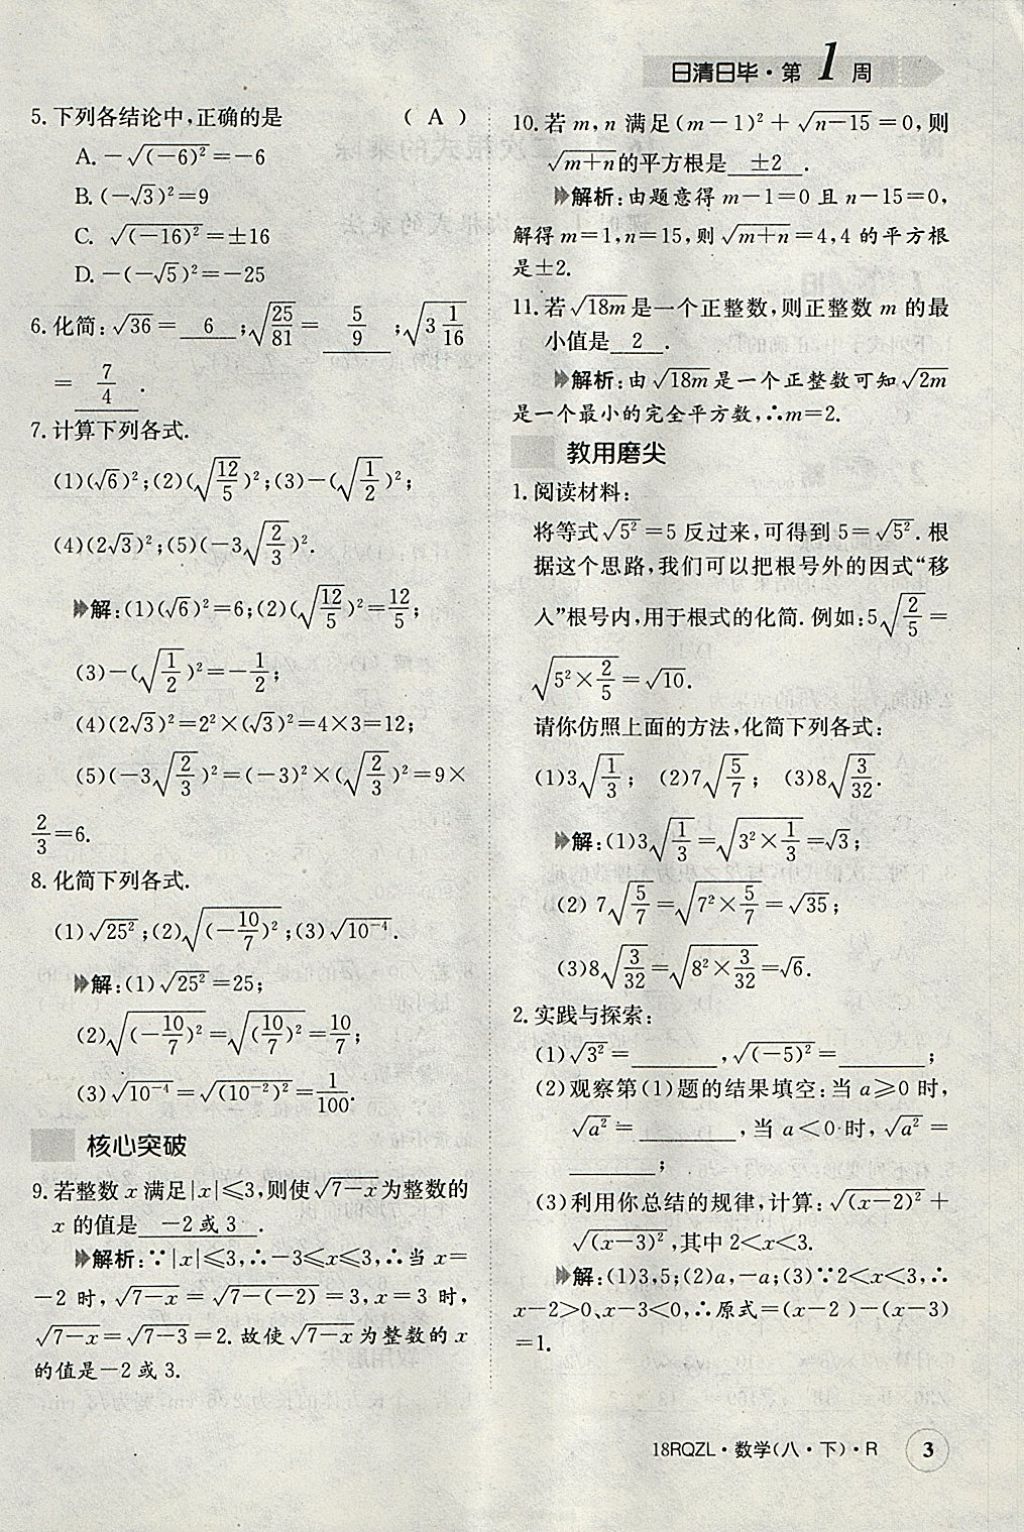 日清日毕·第1周
5. 下列各结论中,正确的是 ( A )
A. −√(−6)² = −6
B. (−√3)² = 9
C. √(−16)² = ±16
D. −(−√5)² = −25
6. 化简: √36 = 6 ; √(25/81) = 5/9 ; √(3 1/16)
= 7/4 .
7. 计算下列各式.
(1)(√6)²;(2)(√(12/5))²;(3)−(√(1/2))²;
(4)(2√3)²;(5)(−3√(2/3))².
解:(1)(√6)²=6;(2)(√(12/5))²=12/5;
(3)−(√(1/2))²=−1/2;
(4)(2√3)²=2²×(√3)²=4×3=12;
(5)(−3√(2/3))²=(−3)²×(√(2/3))²=9×
2/3=6.
8. 化简下列各式.
(1)√25²;(2)√(−10/7)²;(3)√10⁻⁴.
解:(1)√25²=25;
(2)√(−10/7)²=√(10/7)²=10/7;
(3)√10⁻⁴=√(10⁻²)²=1/100.
核心突破
9. 若整数 x 满足|x|≤3,则使√(7−x)为整数的
x 的值是 −2或3 .
解析:∵|x|≤3,∴−3≤x≤3,∴当 x=
−2 时,√(7−x)=√(7−(−2))=3,x=3 时,
√(7−x)=√(7−3)=2. 故使√(7−x)为整数的 x
的值是−2或3.
10. 若 m,n 满足(m−1)²+√(n−15)=0,则
√(m+n)的平方根是 ±2 .
解析:由题意得 m−1=0 且 n−15=0,
解得 m=1,n=15,则√(m+n)=4,4 的平方根
是±2.
11. 若√(18m)是一个正整数,则正整数 m 的最
小值是 2 .
解析:由√(18m)是一个正整数可知√(2m)
是一个最小的完全平方数,∴m=2.
教用磨尖
1. 阅读材料:
将等式√5²=5 反过来,可得到 5=√5². 根
据这个思路,我们可以把根号外的因式“移
人”根号内,用于根式的化简. 例如:5√(2/5)=
√(5²×2/5)=√10.
请你仿照上面的方法,化简下列各式:
(1)3√(1/3); (2)7√(5/7); (3)8√(3/32).
解:(1)3√(1/3)=√(3²×1/3)=√3;
(2) 7√(5/7)=√(7²×5/7)=√35;
(3)8√(3/32)=√(8²×3/32)=√6.
2. 实践与探索:
(1)√3²=______,√(−5)²=______;
(2)观察第(1)题的结果填空:当 a≥0 时,
√a²=______,当 a<0 时,√a²=
______;
(3)利用你总结的规律,计算:√(x−2)²+
√(x−3)²,其中 2<x<3.
解:(1)3,5;(2)a,−a;(3)∵2<x<3,∴
x−2>0、x−3<0,∴原式=(x−2 )−(x−3)
=1.
18RQZL·数学(八·下)·R 3